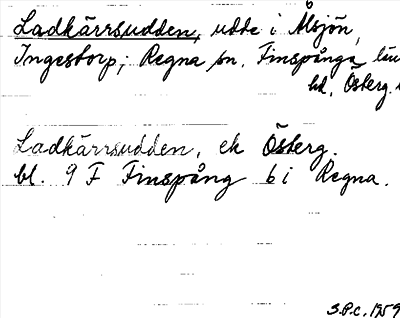 Ladkärrsudden, udde i Ålsjön,
Ingestorp; Regna sn. Finspånga län
hd. Österg.
Ladkärrsudden, ek Österg.
bl. 9 F Finspång 6 i Regna.
S.P.C. 1959